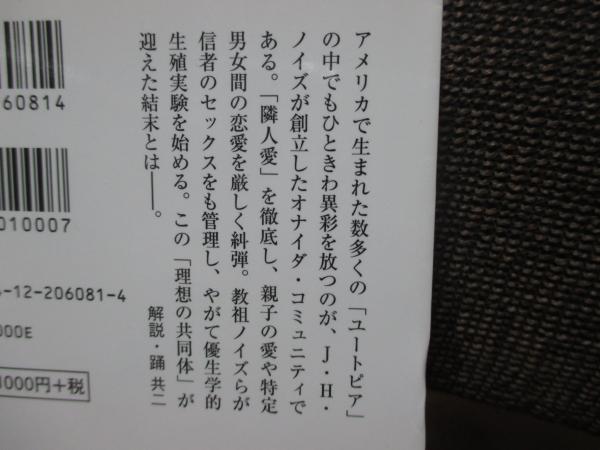 アメリカで生まれた数多くの「ユートピア」
の中でもひときわ異彩を放つのが、J・H・
ノイズが創立したオナイダ・コミュニティで
ある。「隣人愛」を徹底し、親子の愛や特定
男女間の恋愛を厳しく糾弾。教祖ノイズらが
信者のセックスをも管理し、やがて優生学的
生殖実験を始める。この「理想の共同体」が
迎えた結末とは――。
解説・踊 共二
60814
010007
4-12-206081-4
000E
1000円+税